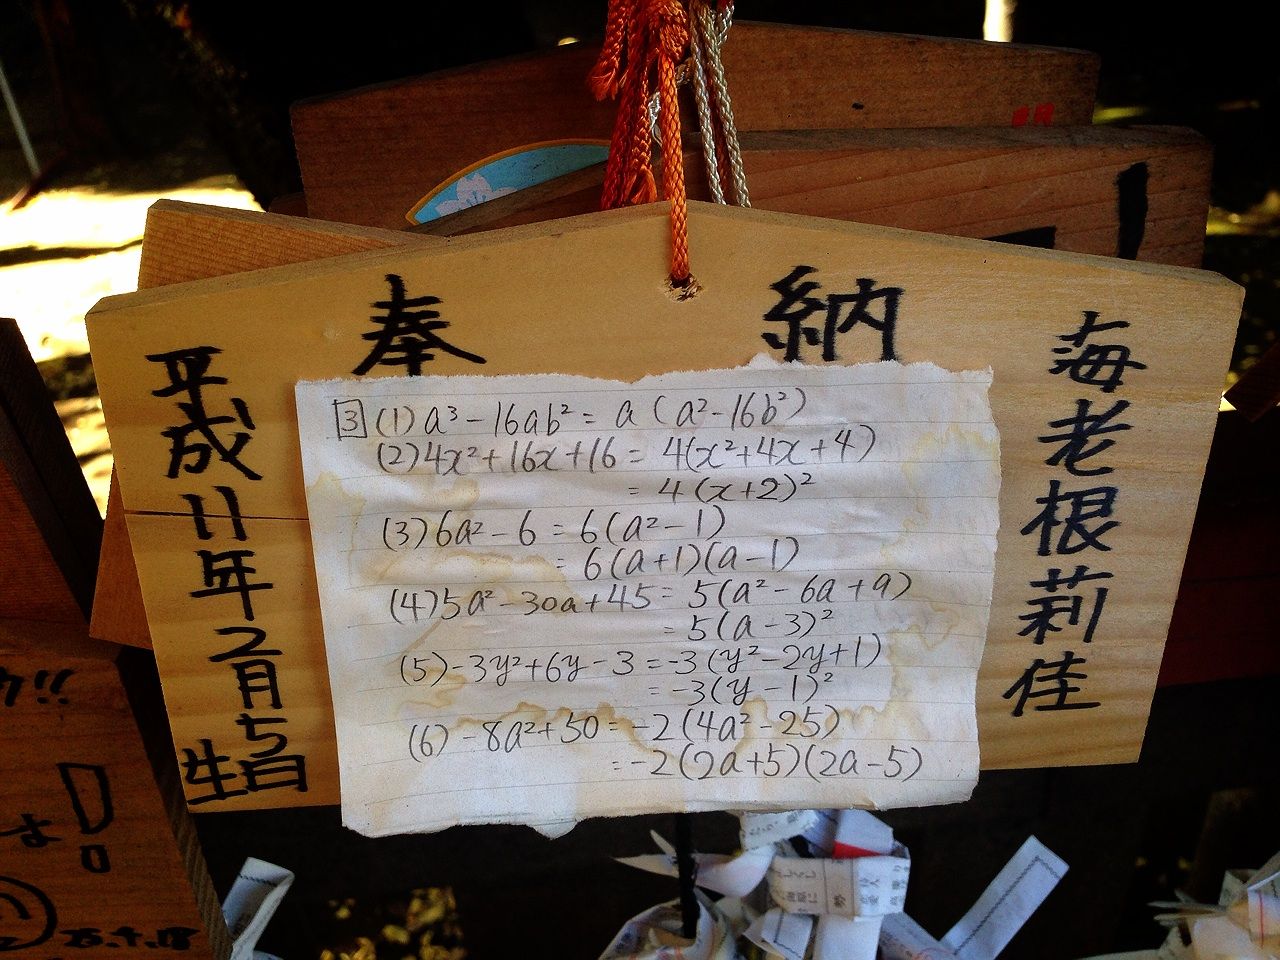 奉納
海老根莉佳
平成11年2月5日
生
[3] (1) a³-16ab² = a(a²-16b²)
(2) 4x²+16x+16 = 4(x²+4x+4)
= 4(x+2)²
(3) 6a²-6 = 6(a²-1)
= 6(a+1)(a-1)
(4) 5a²-30a+45 = 5(a²-6a+9)
= 5(a-3)²
(5) -3y²+6y-3 = -3(y²-2y+1)
= -3(y-1)²
(6) -8a²+50 = -2(4a²-25)
= -2(2a+5)(2a-5)
!!
よ